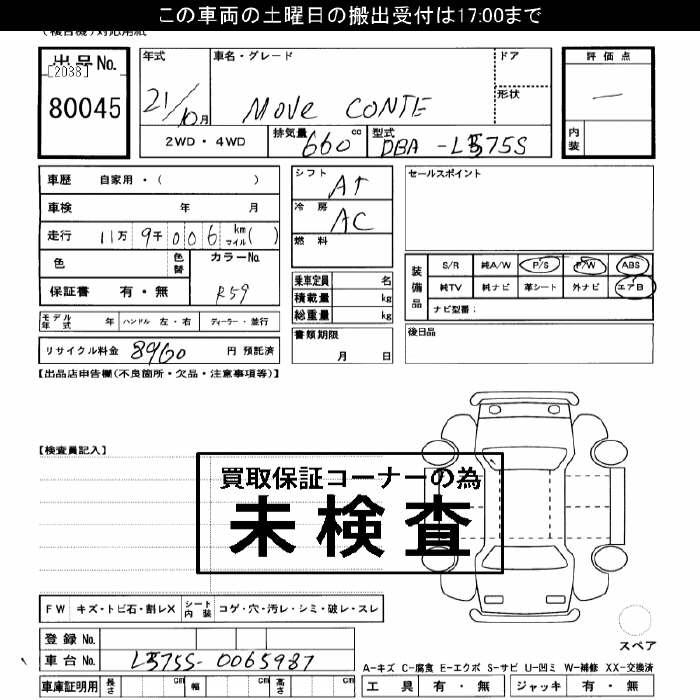 この車両の土曜日の搬出受付は17:00まで
(複合機)対応用紙
出品No.
[2038]
80045
年式
21/10月
車名・グレード
MOVE CONTE
ドア
形状
2WD・4WD
排気量
660cc
型式
DBA-L575S
評価点
—
内装
車歴 自家用・( )
車検 年 月
走行 11万 9千 0 0 6 km マイル( )
色
色替
カラーNo.
R59
保証書 有・無
シフト
AT
冷房
AC
燃料
乗車定員 名
積載量 kg
総重量 kg
書類期限
月 日
セールスポイント
装備品
S/R 純A/W P/S P/W ABS
純TV 純ナビ 革シート 外ナビ エアB
ナビ型番:
後日品
モデル年式 年 ハンドル 左・右 ディーラー・並行
リサイクル料金 8960 円 預託済
【出品店申告欄(不良箇所・欠品・注意事項等)】
【検査員記入】
買取保証コーナーの為
未検査
FW キズ・トビ石・割レX シート内装 コゲ・穴・汚レ・シミ・破レ・スレ
スペア
登録No.
車台No. L575S-0065987
A-キズ C-腐食 E-エクボ S-サビ U-凹ミ W-補修 XX-交換済
車庫証明用 長さ cm 幅 cm 高さ cm
工具 有・無 ジャッキ 有・無